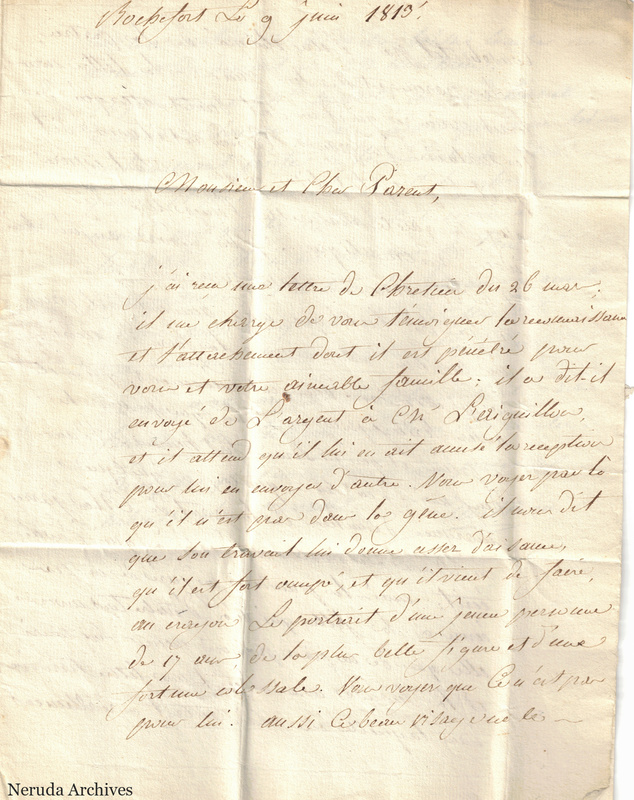 Rochefort Le 9 juin 1813.
Monsieur et Cher Parent,
j'ai reçu une lettre de Chretien du 26 mars;
il me charge de vous temoigner la reconnaissance
et l'attachement dont il est pénétré pour
vous et votre aimable famille: il a dit-il
envoyé de L'argent à
et il attend qu'il lui en ait accusé la reception
pour lui en envoyer d'autre. Vous voyez par là
qu'il n'est pas dans la gêne. il nous dit
que son travail lui donne assez d'aisance,
qu'il est fort occupé, et qu'il vient de faire,
au crayon Le portrait d'une jeune personne
de 17 ans, de la plus belle figure et d'une
fortune colossale. Vous voyez que ce n'est pas
pour lui. aussi Ce beau visage
Neruda Archives